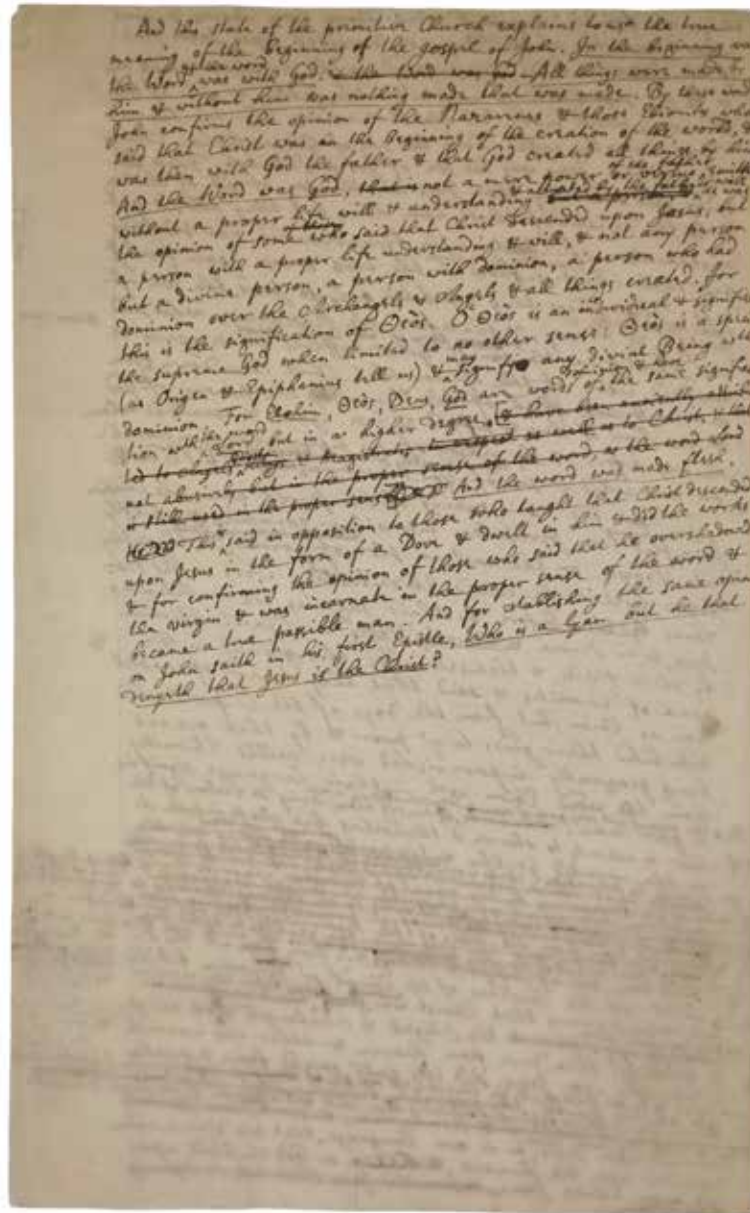 And this state of the primitive Church explains to us the true
meaning of the beginning of the gospel of John. In the beginning w
the Word & the word was with God, & the word was god. All things were made by
him & without him was nothing made that was made. By these word
John confirms the opinion of the Nazarenes & those Ebionites who
said that Christ was in the beginning of the creation of the world,
was then with God the father & that God created all things by him
And the Word was God, that is not a mere power or virtue of the father
without a proper life will & understanding
the opinion of some who said that Christ descended upon Jesus, but
a person with a proper life understanding & will, & not any person
but a divine person, a person with dominion, a person who had
dominion over the Archangels & Angels & all things created. For
this is the signification of Θεὸς. Ὁ Θεὸς is an individual & signifi
the supreme God when limited to no other sense: Θεὸς is a spe
(as Origen & Epiphanius tell us) & may signify any divine Being with
dominion. For Elohim, Θεὸς, Deus, God are words of dominion & have the same signifi
tion with the word Lord but in a higher degree, & have been
ted to Angels Kings & Magistrates, in respect as well as to Christ, &
not abusively but in the proper sense of the word, as the word Lord
is still used in the proper sense And the word was made flesh.
This said in opposition to those who taught that Christ descended
upon Jesus in the form of a Dove & dwelt in him & did the works
& for confirming the opinion of those who said that he overshadowed
the virgin & was incarnate in the proper sense of the word &
became a true passible man. And for establishing the same opini
on John saith in his first Epistle, Who is a lyar but he that
denyeth that Jesus is the Christ?